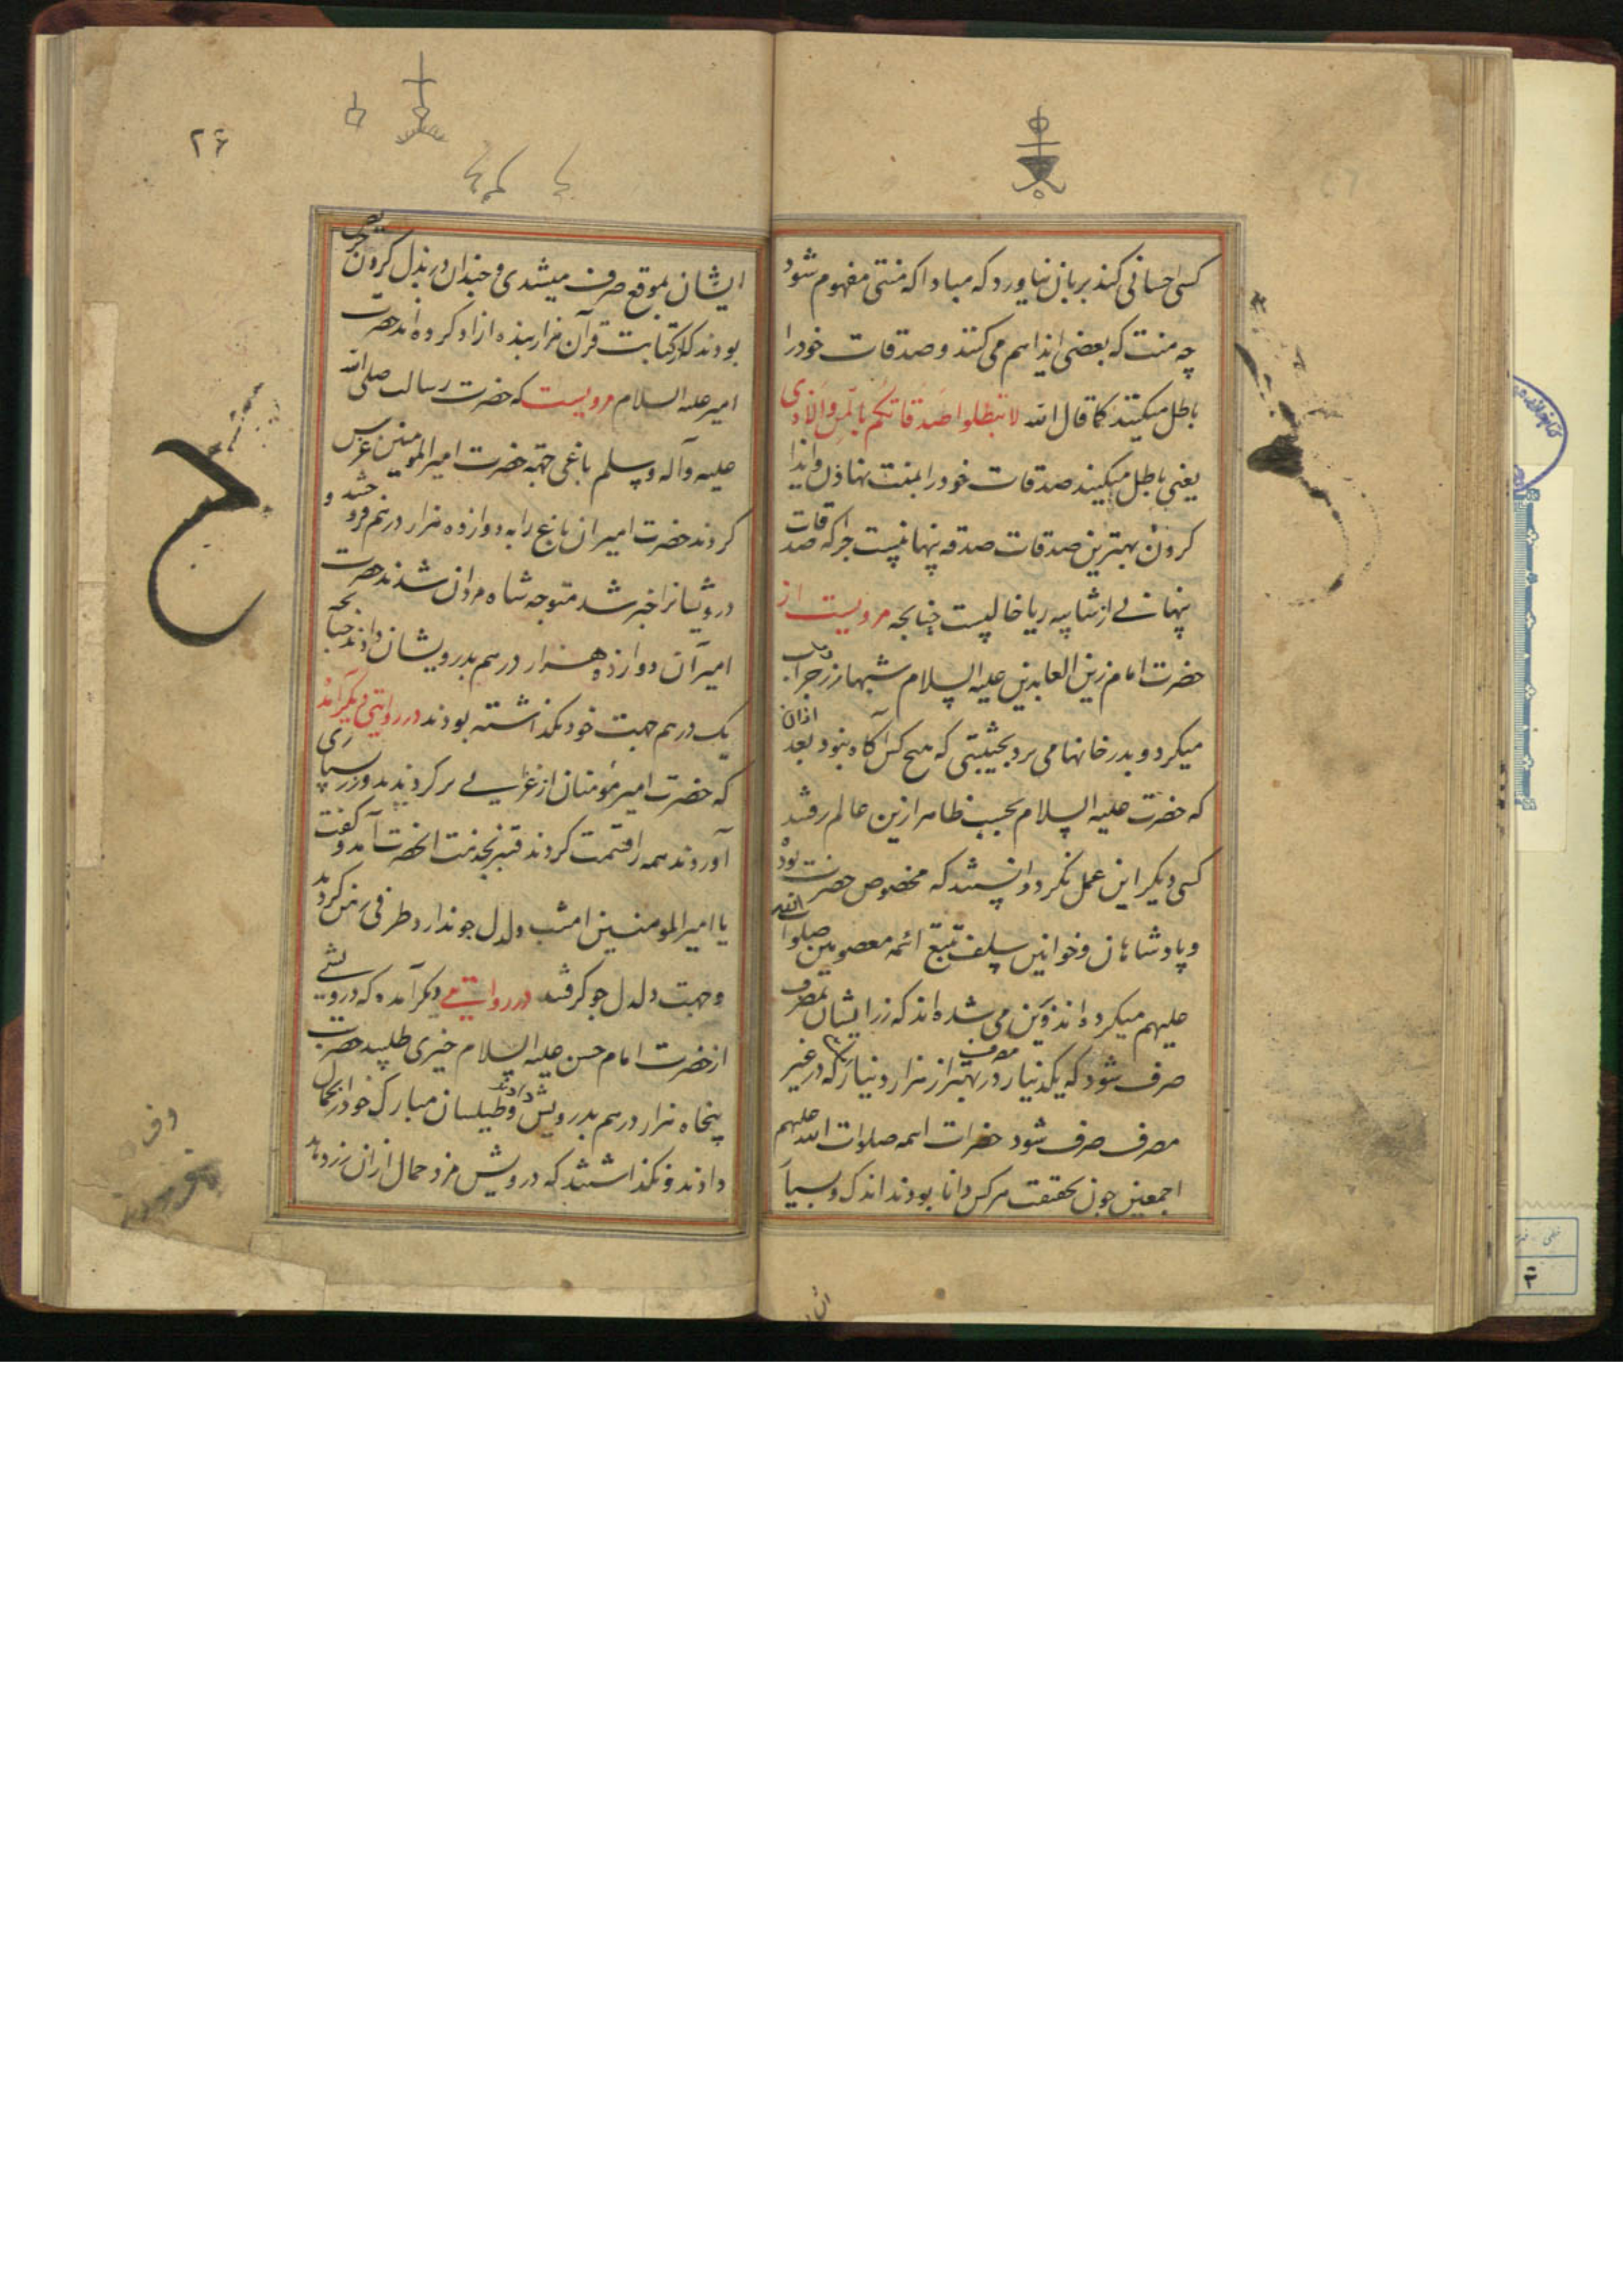 کسی احسانی کند بر بان نیاورد که مبادا که منتی مفهوم شود
چه منت که بعضی ایذا هم می کنند و صدقات خود را
باطل میکنند کما قال الله لا تبطلوا صدقاتکم بالمن والاذی
یعنی باطل میکنید صدقات خود را بمنت نهادن و ایذا
کردن بهترین صدقات صدقه پنهانیست چراکه صدقات
پنهانے از شایبه ریا خالیست چنانچه مرویست از
حضرت امام زین العابدین علیه السلام شبها زر در جراب
میکرد و بدر خانها می برد بحیثیتی که هیچ کس آکاه نبود بعد ازان
که حضرت علیه السلام بحسب ظاهر ازین عالم رفتند
کسی دیکر این عمل نکرد دانستند که مخصوص حضرت بود
و پادشاهان و خوانین سلف تتبع ائمه معصومین صلوات الله
علیهم میکرده اند و می شده اند که زر ایشان بمصرف
صرف شود که یکدینار در مصرف بهتر از هزار دینار که در غیر
مصرف صرف شود حضرات ائمه صلوات الله علیهم
اجمعین چون بحقیقت هرکس دانا بودند اندک و بسیا
۲۶
ایشان بموقع صرف میشدی و چندان در بذل کردن حریص
بودند که از کتابت قرآن هزار بنده ازاد کرده اند حضرت
امیر علیه السلام مرویست که حضرت رسالت صلی الله
علیه و آله وسلم باغی جهة حضرت امیر المومنین غرس
کردند حضرت امیر ان باغ را به دوازده هزار درهم فروختند و
درویشانرا خبر شد متوجه شاه مردان شدند حضرت
امیر آن دوازده هزار درهم بدرویشان دادند چنانچه
یک درهم جهت خود نکذاشته بودند در روایتی دیکر آمده
که حضرت امیر مؤمنان از غزایے بر کردیدند و زر بسیاری
آوردند همه را قسمت کردند قنبر بخدمت انحضرت آمد و کفت
یا امیر المومنین امشب دلدل جو ندارد طرفی رهن کردند
و جهت دلدل جو کرفتند در روایتے دیکر آمده که درویشے
از حضرت امام حسن علیه السلام چیزی طلبید حضرت
پنجاه هزار درهم بدرویش دادند و طیلسان مبارک خود را بحمال
دادند و نکذاشتند که درویش مزد حمال از ان زر دهد